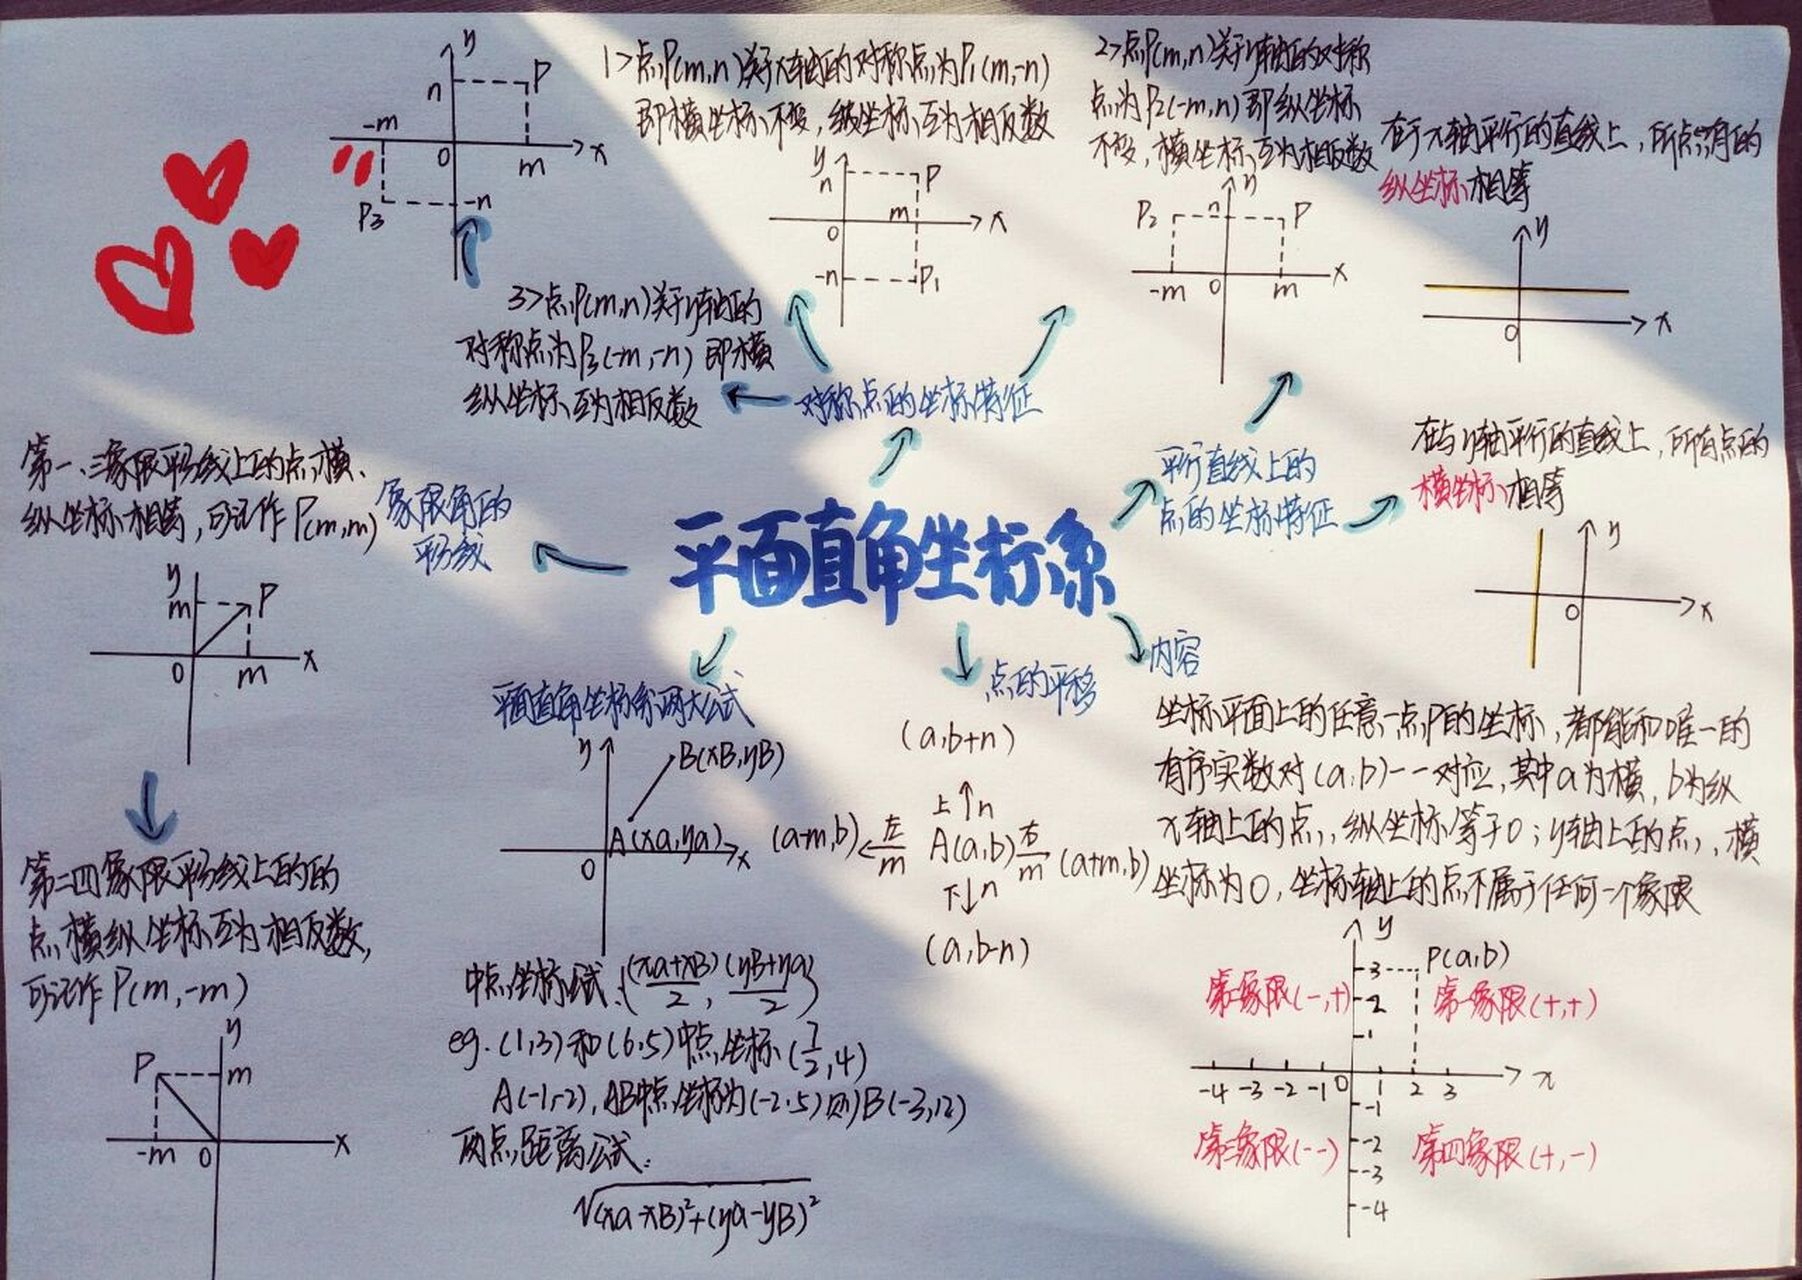 平面直角坐标系
对称点的坐标特征
1>点P(m,n)关于x轴的对称点为P₁(m,-n)
即横坐标不变,纵坐标互为相反数
y
n
P
m
x
0
-n
P₁
2>点P(m,n)关于y轴的对称
点为P₂(-m,n)即纵坐标
不变,横坐标互为相反数
y
P₂
n
P
x
-m
0
m
3>点P(m,n)关于y轴的
对称点为P₃(-m,-n)即横
纵坐标互为相反数
y
n
P
-m
0
m
x
P₃
-n
平行直线上的
点的坐标特征
在于x轴平行的直线上,所点有的
纵坐标相等
y
x
0
在与y轴平行的直线上,所有点的
横坐标相等
y
x
0
象限角的
平分线
第一、三象限平分线上的点,横、
纵坐标相等,可记作P(m,m)
y
m
P
0
m
x
第二四象限平分线上的的
点,横纵坐标互为相反数,
可记作P(m,-m)
y
P
m
-m
0
x
平面直角坐标系两大公式
y
B(xB,yB)
A(xa,ya)
x
0
中点坐标公式:((xa+xB)/2,(yB+ya)/2)
eg.(1,3)和(6,5)中点坐标(7/2,4)
A(-1,-2),AB中点坐标为(-2,5)则B(-3,12)
两点距离公式:
√(xa-xB)²+(ya-yB)²
点的平移
(a,b+n)
上↑n
(a-m,b)
左
m
A(a,b)
右
m
(a+m,b)
下↓n
(a,b-n)
内容
坐标平面上的任意一点P的坐标,都能和唯一的
有序实数对(a,b)一一对应,其中a为横,b为纵
x轴上的点,纵坐标等于0;y轴上的点,横
坐标为0,坐标轴上的点不属于任何一个象限
y
3
P(a,b)
第二象限(-,+)
2
第一象限(+,+)
1
-4 -3 -2 -1 0 1 2 3 x
-1
第三象限(--)
-2
第四象限(+,-)
-3
-4